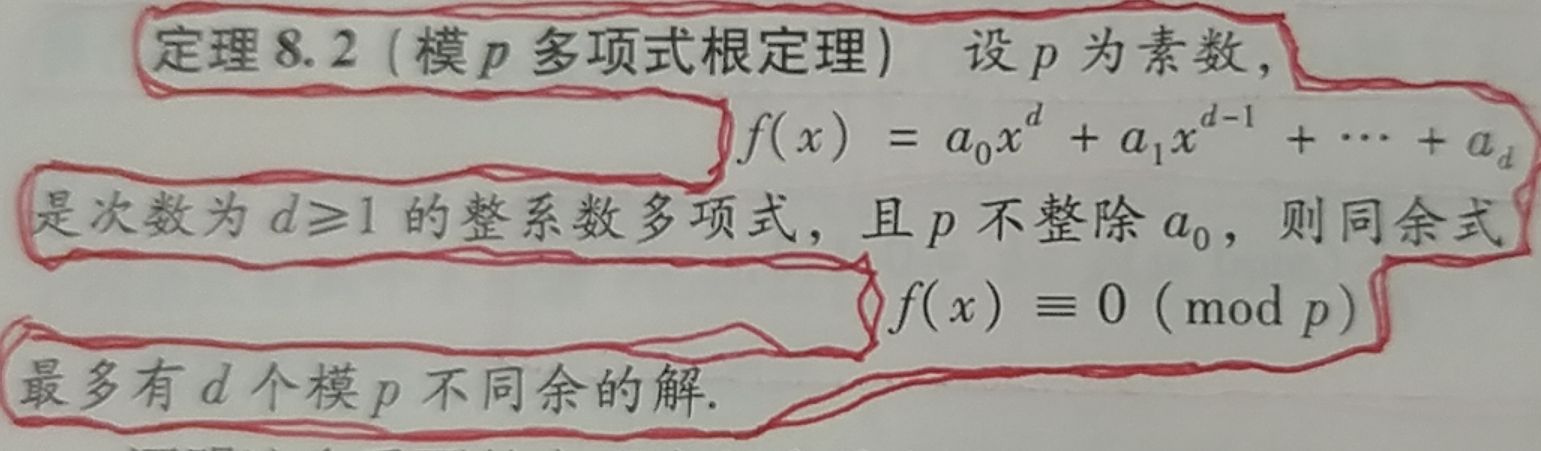 定理 8.2（模 p 多项式根定理） 设 p 为素数，
f(x) = a₀xᵈ + a₁xᵈ⁻¹ + ⋯ + a_d
是次数为 d≥1 的整系数多项式，且 p 不整除 a₀，则同余式
f(x) ≡ 0 (mod p)
最多有 d 个模 p 不同余的解.